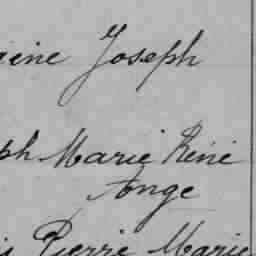 ène Joseph
ph Marie Réné
Ange
s Pierre Marie